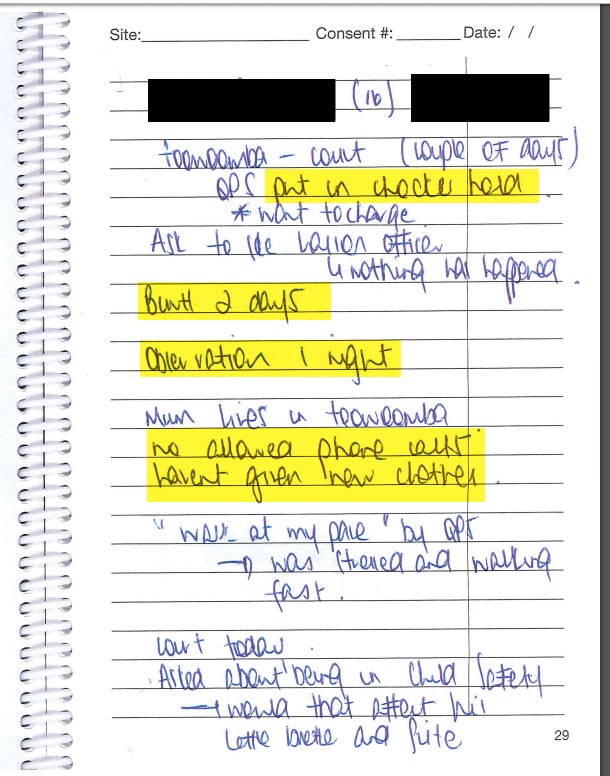 Site: Consent #: Date: / /
(16)
toowoomba – court (couple of days)
QPS put in chocke hold.
* want to charge.
Ask to see liaison officer
↳ nothing has happened.
Burth 2 days
Observation 1 night
Mum lives in toowoomba
no allowed phone calls.
havent given new clothes.
"walk at my pace" by QPS
→ was stressed and walking
fast.
court today.
Asked about being in Child Safety
→ would that affect his
little brother and
29